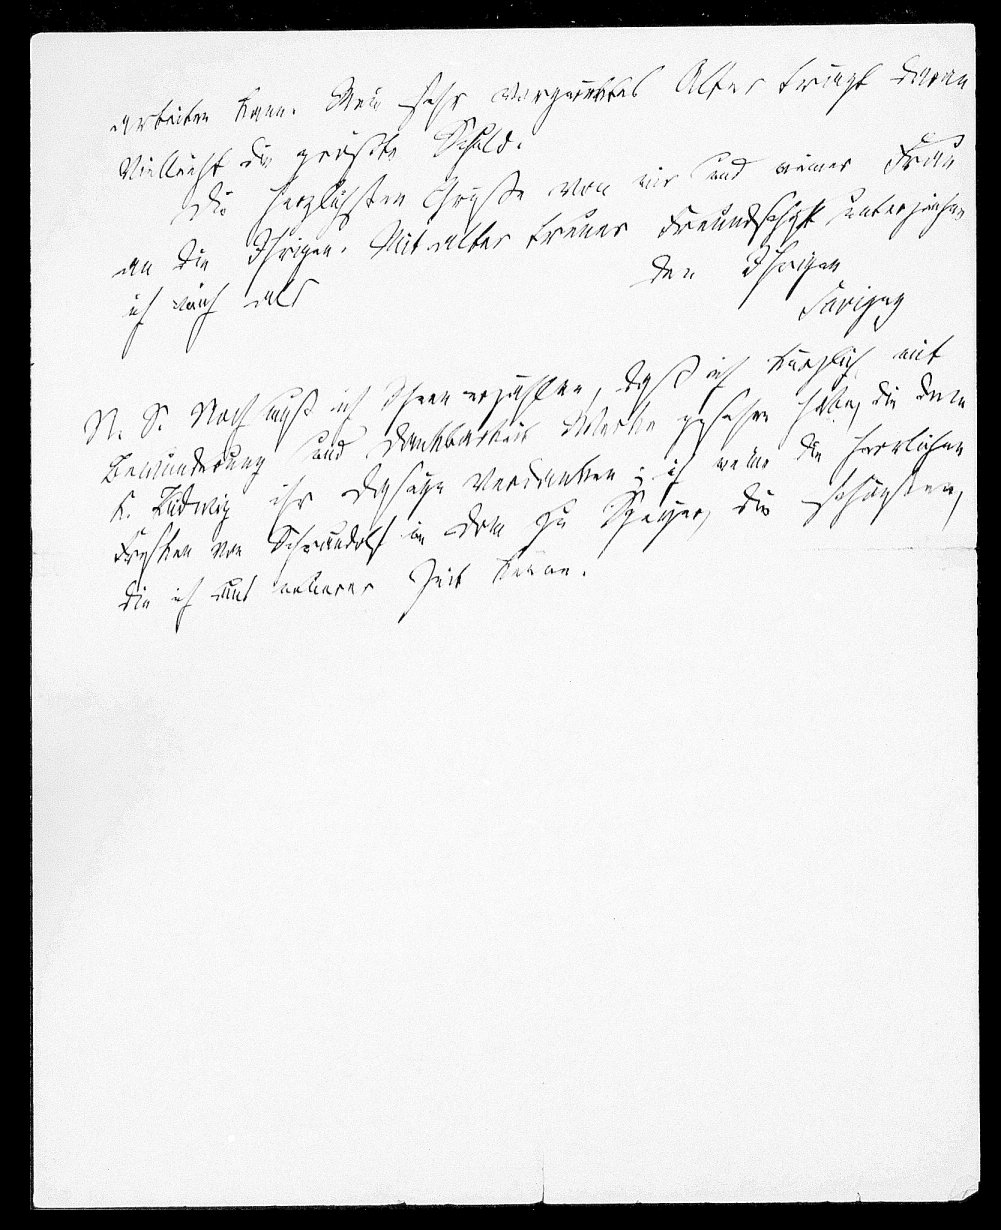 arbeiten kann. Mein sehr vorgerücktes Alter trägt daran
vielleicht die größte Schuld.
Die herzlichsten Grüße von mir und meiner Frau
an die Ihrigen. Mit alter treuer Freundschaft unterzeichne
ich mich als den Ihrigen
Savigny
N. S. Noch muß ich Ihnen erzählen, daß ich kürzlich mit
Bewunderung und Dankbarkeit Werke gesehen habe, die dem
K. Ludwig ihr Daseyn verdanken; ich meine die herrlichen
Fresken von Schraudolf im Dom zu Speyer, die schönsten,
die ich aus neuerer Zeit kenne.